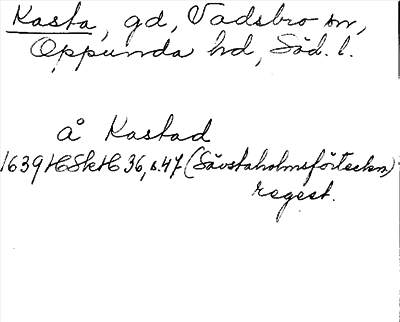 Kasta, gd, Vadsbro sn,
Oppunda hd, Söd. l.
å Kastad
1639 HSkH 36, s.47 (Sävstaholmsförteckn)
regest.